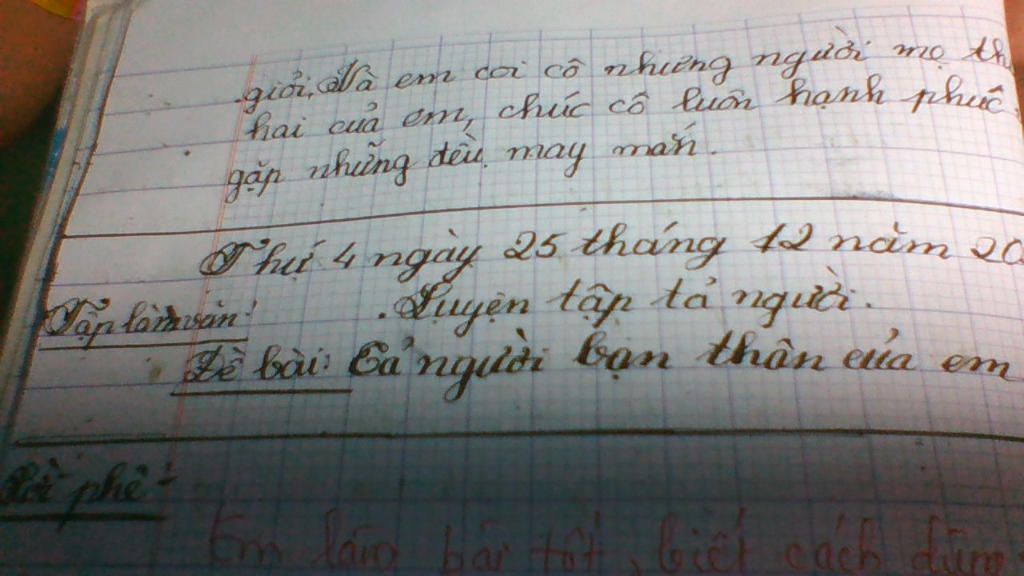 giỏi, Và em coi cô nhưng người mẹ th
hai của em, chúc cô luôn hạnh phúc
gặp những đều may mắn.
Thứ 4 ngày 25 tháng 12 năm 20
Tập làm văn: Luyện tập tả người.
Đề bài: Tả người bạn thân của em
Lời phê:
Em làm bài tốt, biết cách dùng